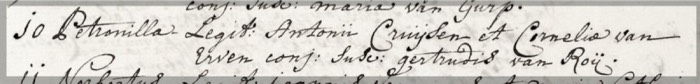 conj: susc: maria van Gurp.
10 Petronilla. Legit: Antonii Cruijsen et Corneliæ van
Erven conj: susc: gertrudis van Roij.
11 Norbertus